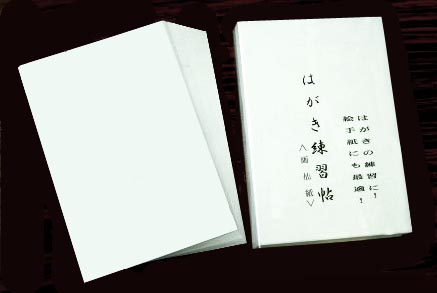 はがきの練習に!
絵手紙にも最適!
はがき練習帖
＜画仙紙＞